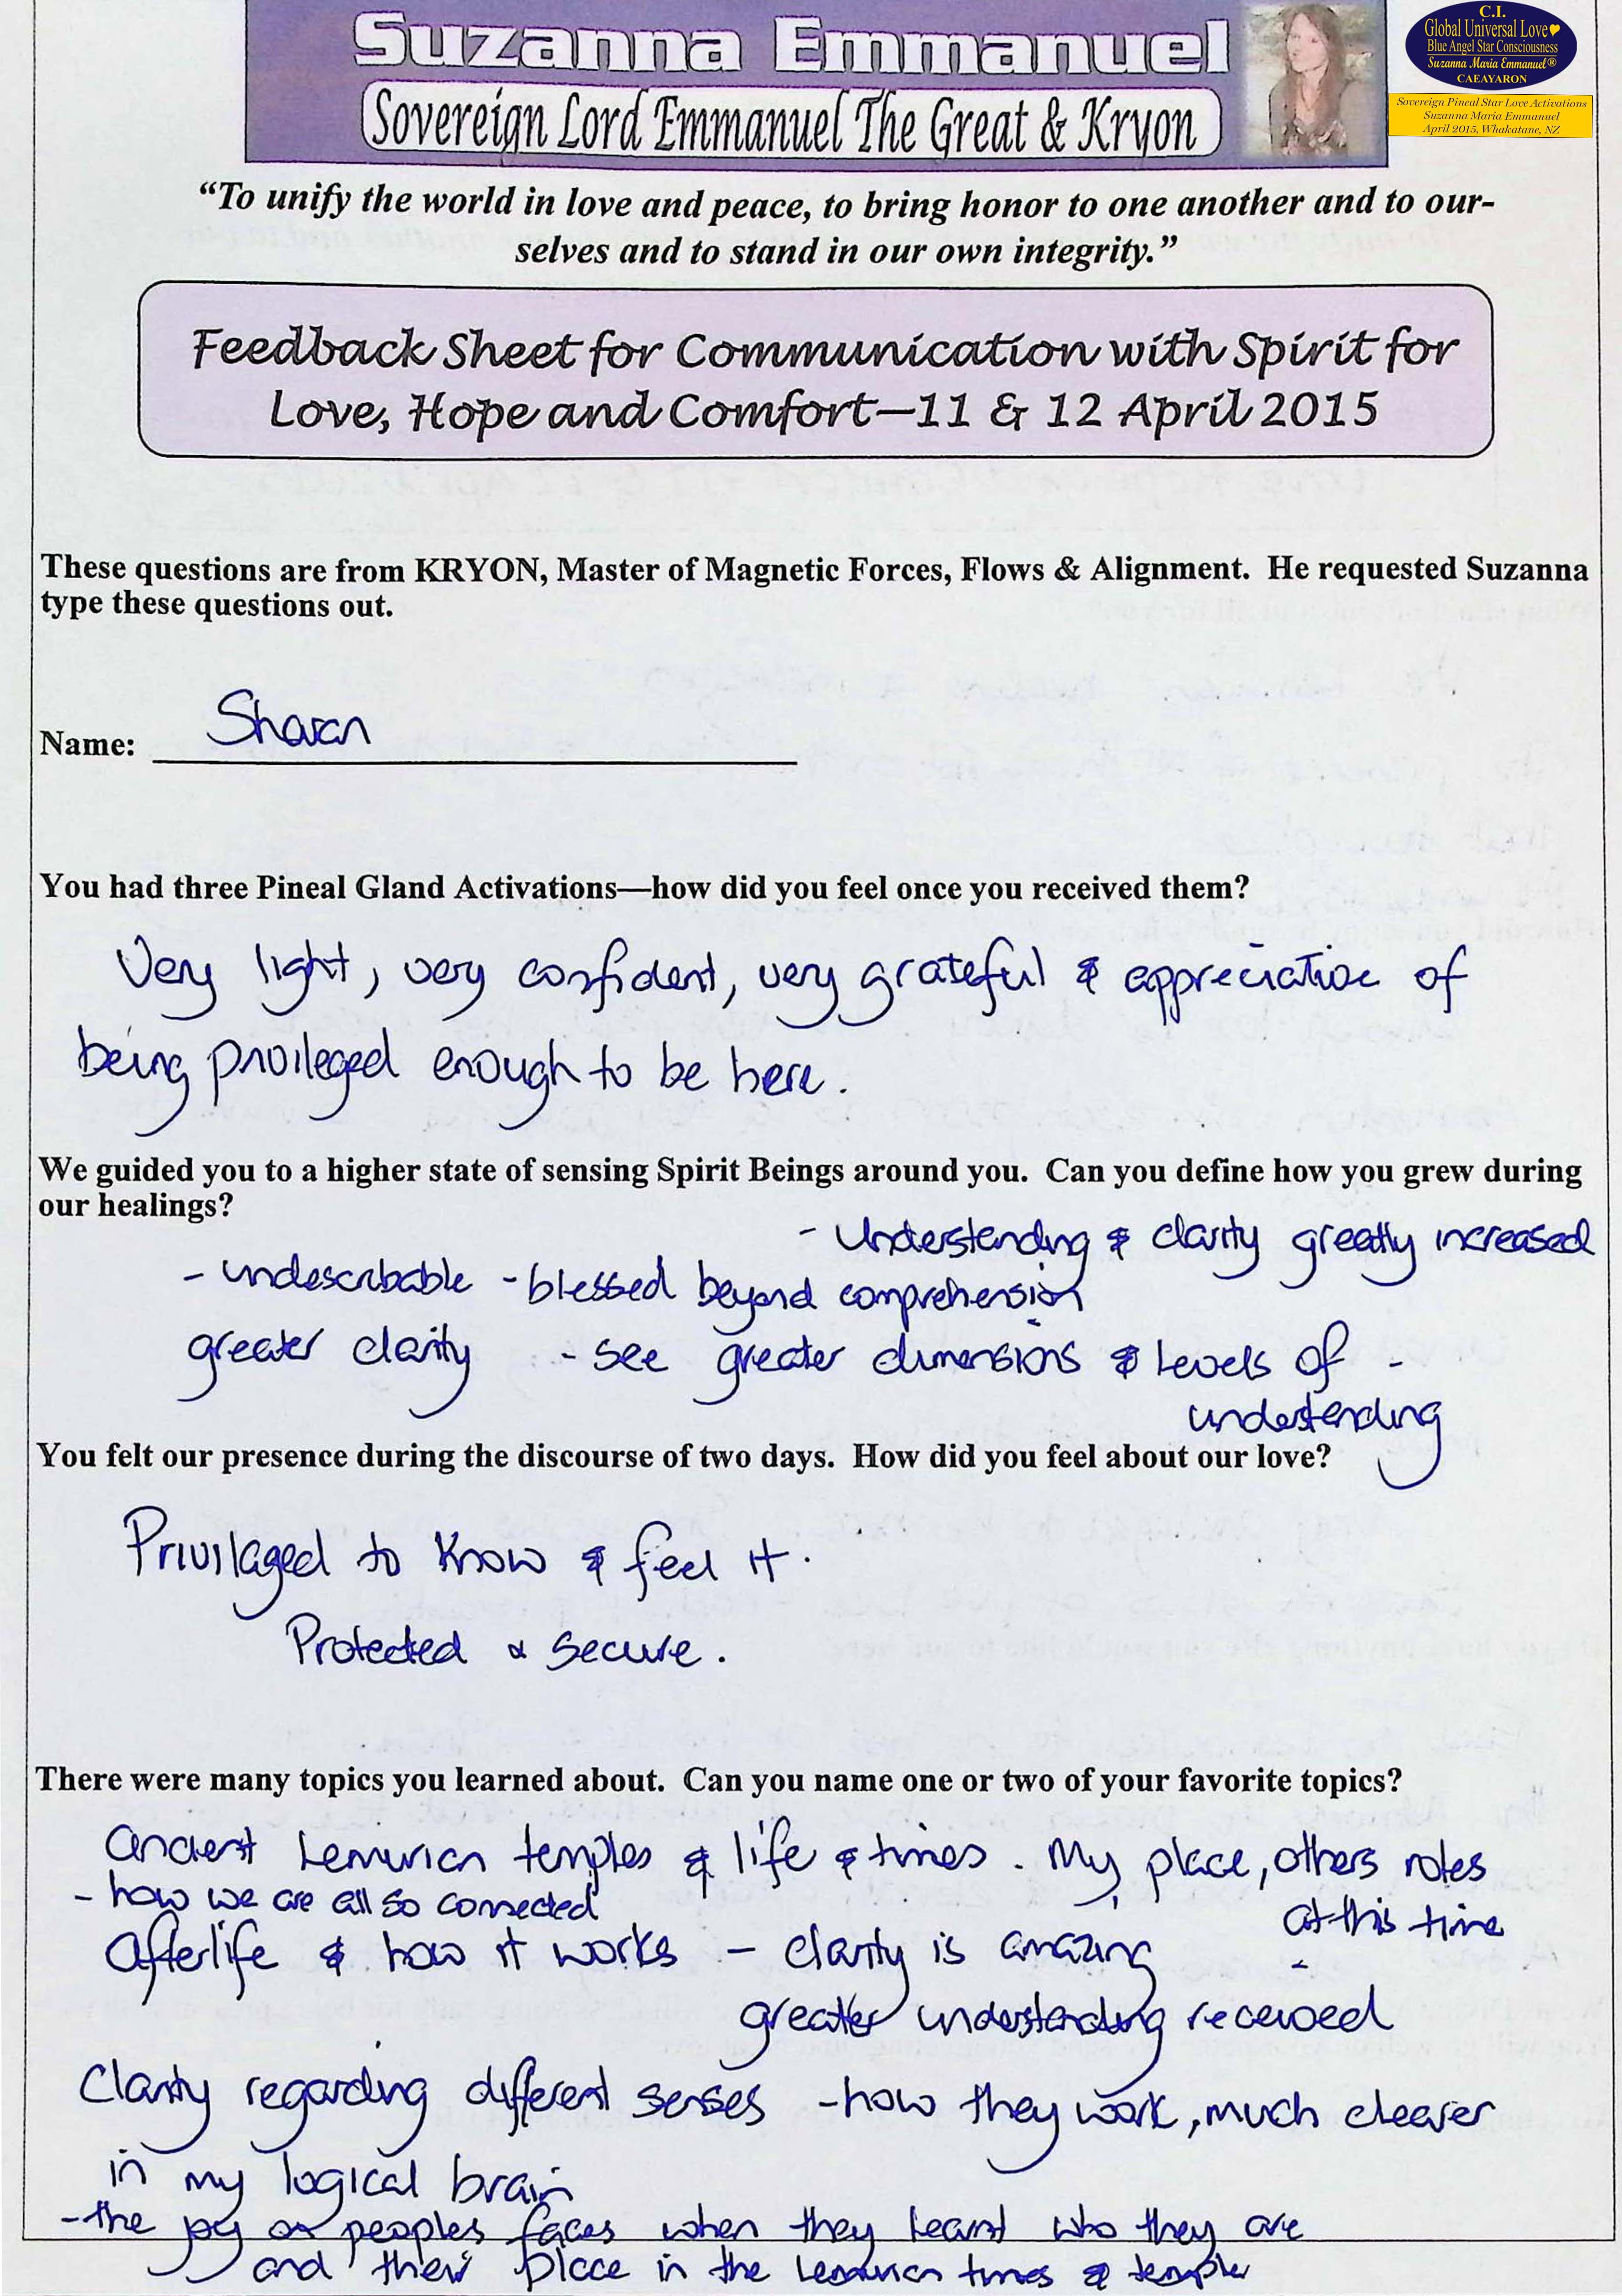 Suzanna Emmanuel
Sovereign Lord Emmanuel The Great & Kryon
C.I.
Global Universal Love
Blue Angel Star Consciousness
Suzanna Maria Emmanuel®
CAEAYARON
Sovereign Pineal Star Love Activations
Suzanna Maria Emmanuel
April 2015, Whakatane, NZ
“To unify the world in love and peace, to bring honor to one another and to our-
selves and to stand in our own integrity.”
Feedback Sheet for Communication with Spirit for
Love, Hope and Comfort—11 & 12 April 2015
These questions are from KRYON, Master of Magnetic Forces, Flows & Alignment. He requested Suzanna
type these questions out.
Name: Sharan
You had three Pineal Gland Activations—how did you feel once you received them?
Very light, very confident, very grateful & appreciative of
being privileged enough to be here.
We guided you to a higher state of sensing Spirit Beings around you. Can you define how you grew during
our healings?
- Understanding & clarity greatly increased
- undescribable - blessed beyond comprehension
greater clarity - see greater dimensions & levels of -
understanding
You felt our presence during the discourse of two days. How did you feel about our love?
Privilaged to know & feel it.
Protected & secure.
There were many topics you learned about. Can you name one or two of your favorite topics?
Ancient Lemurian temples & life & times. My place, others roles
at this time
- how we are all so connected
Afterlife & how it works - clarity is amazing
greater understanding received
Clarity regarding different senses - how they work, much clearer
in my logical brain
- the joy on peoples faces when they learnt who they are
and their place in the Lemurian times & temples